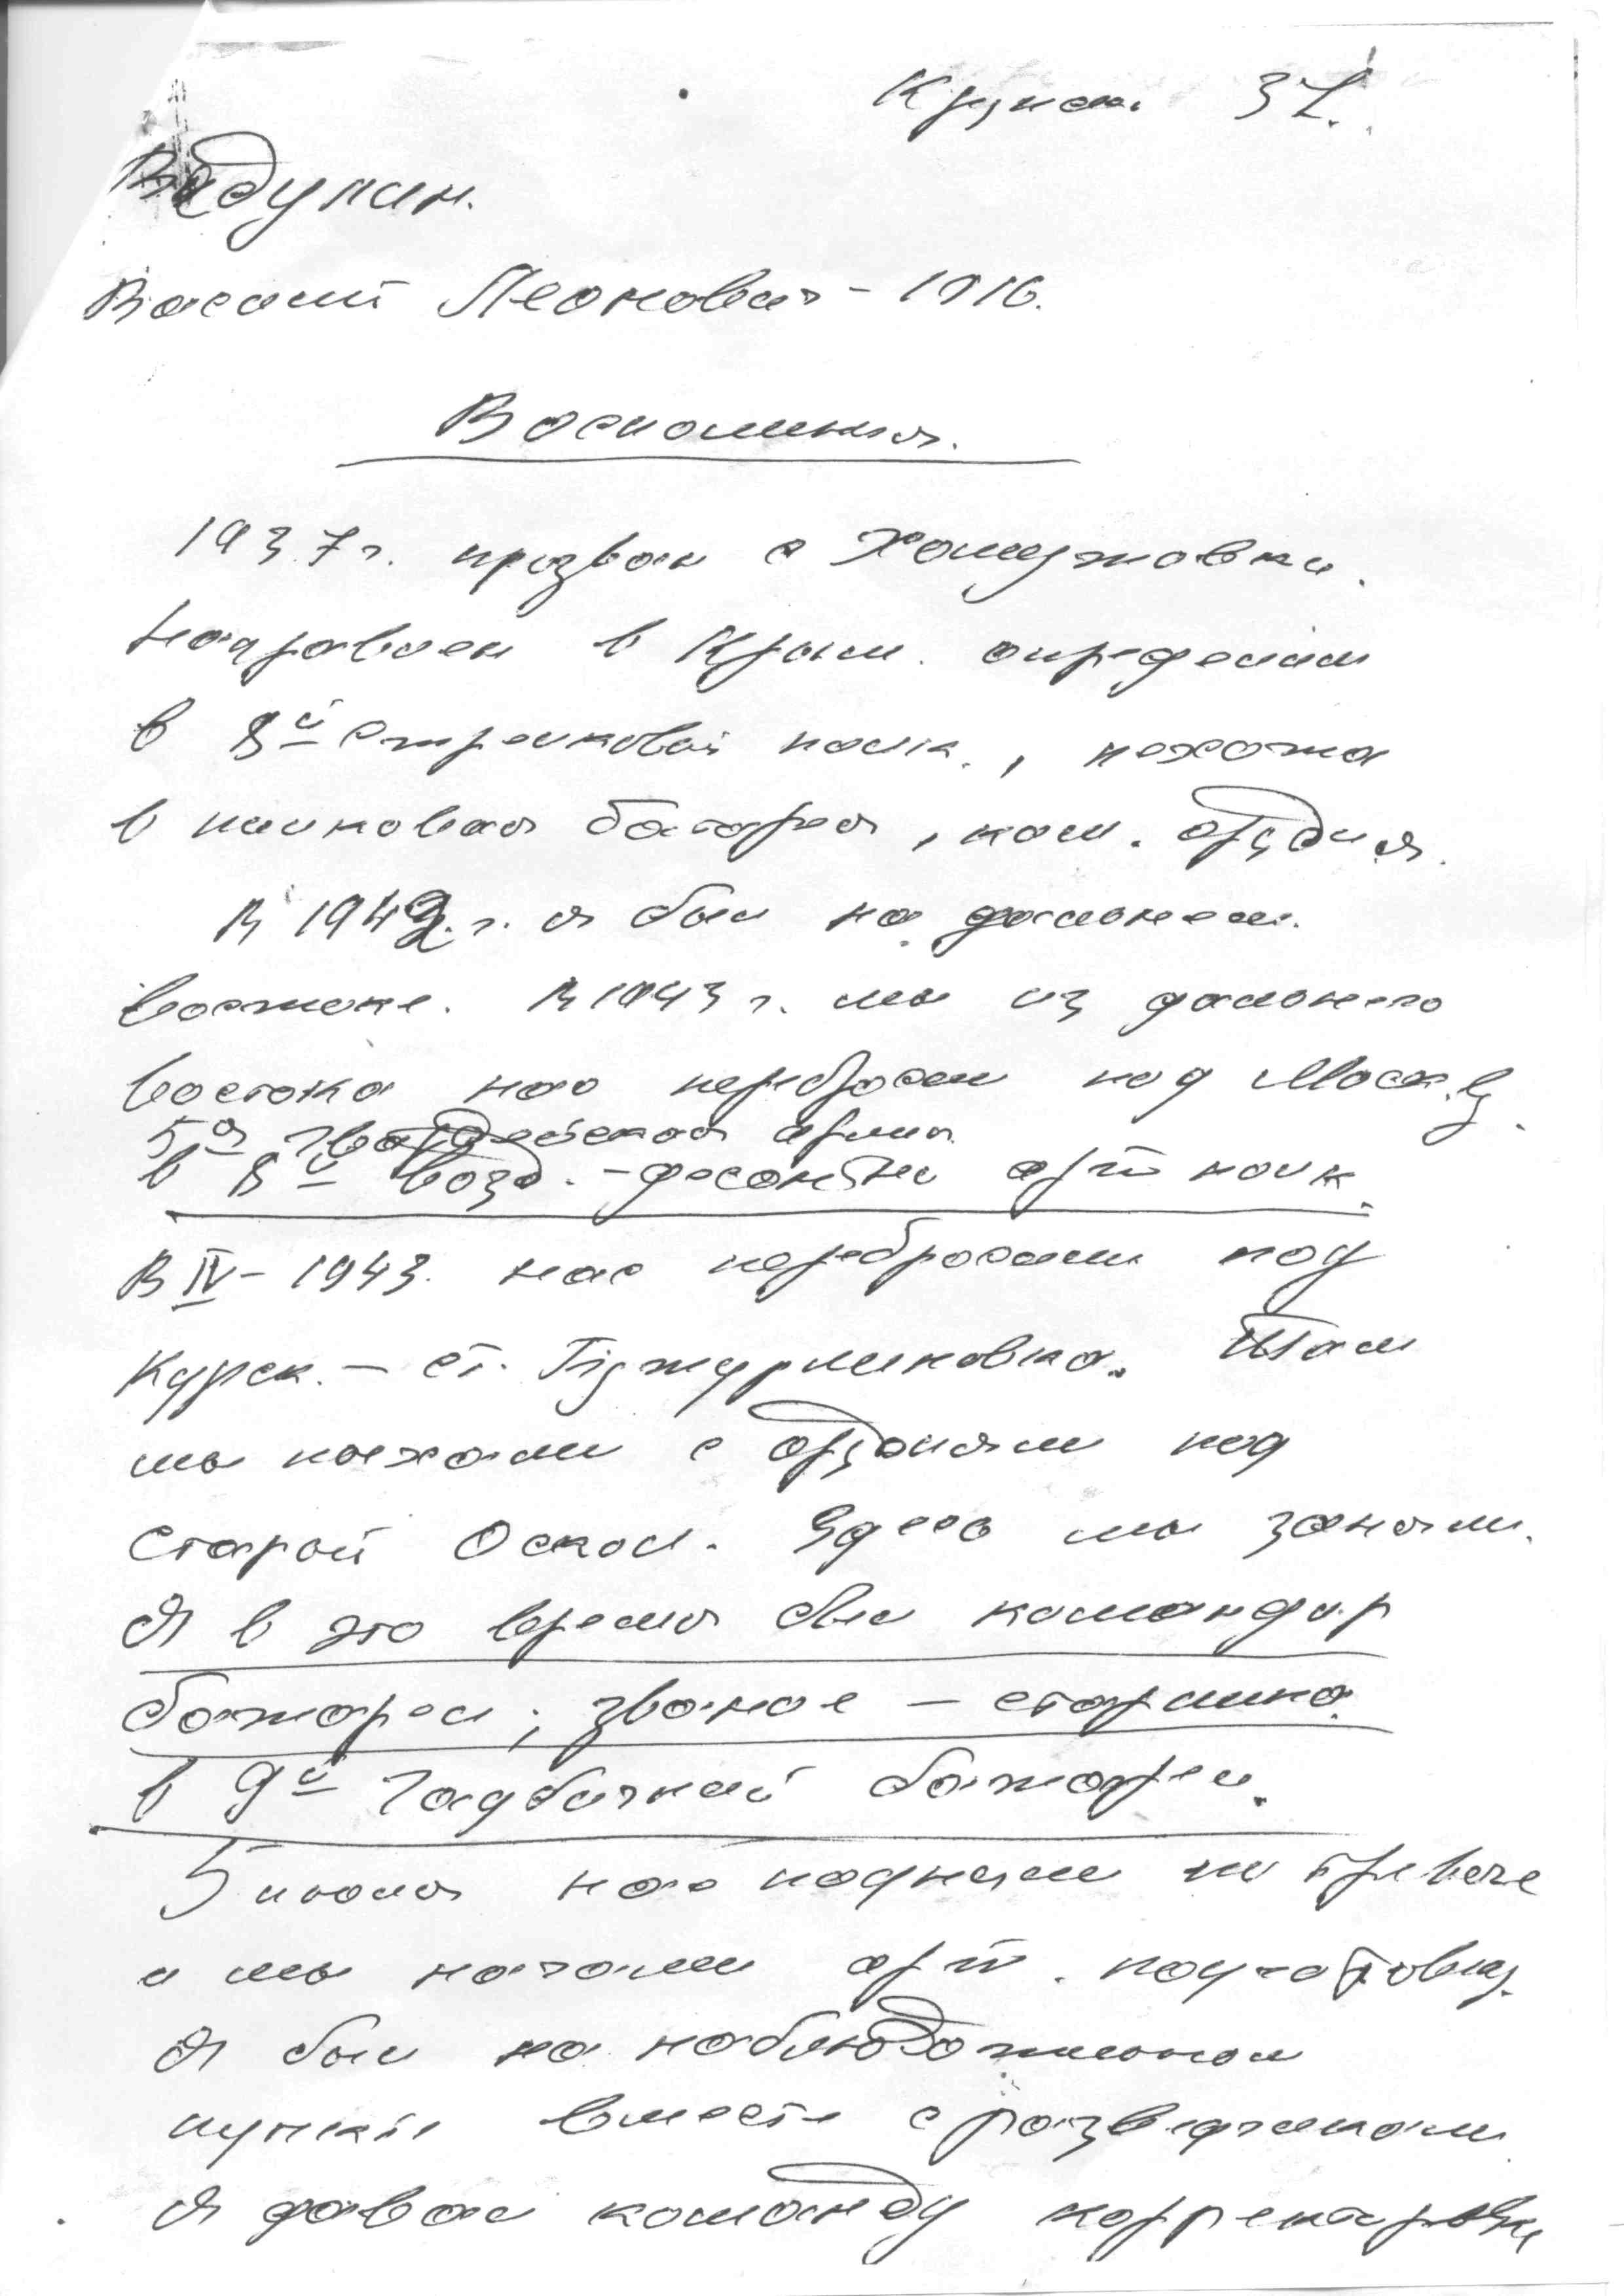 Вадулин.
Василий Леонович - 1916.
Воспоминия.
1937 г. призван с Хомутовки.
Направлен в Крым. определили
в 8й стрелковый полк., пехота
в полковая батарея, ком. орудия.
В 1942 г. я был на дальнем.
востоке. В 1943 г. мы из дальнего
востока нас перебросили под Москву.
5я гвардейская армия
в 8й возд. - десантный арт полк.
В IV - 1943. нас перебросили под
Курск. - ст. Там
мы поехали с орудиями под
Старой Оскол. Здесь мы заняли.
Я в это время был командир
батареи; звание - старшина.
в 9й гаубичной батареи.
5 июля нас подняли по тревоге
и мы начали арт. подготовку.
Я был на наблюдательном
пункте вместе с разведчиком
Я давал команду корректировки